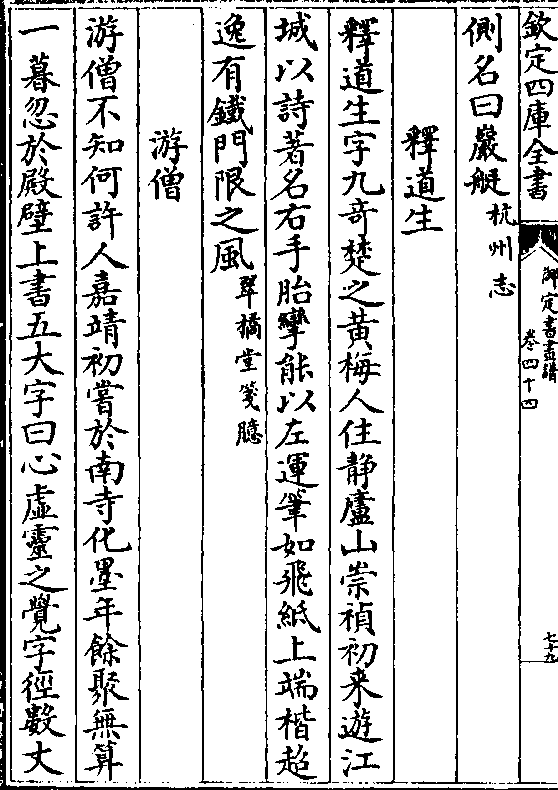 欽定四庫全書
御定書畫譜
卷四十四
七十九
側名曰巖艇杭州志
釋道生
釋道生字九奇楚之黄梅人住静廬山崇禎初来遊江
城以詩著名右手胎攣能以左運筆如飛紙上端楷超
逸有鐵門限之風翠橘堂箋臆
游僧
游僧不知何許人嘉靖初嘗於南寺化墨年餘聚無算
一暮忽於殿壁上書五大字曰心虚靈之覺字徑數丈